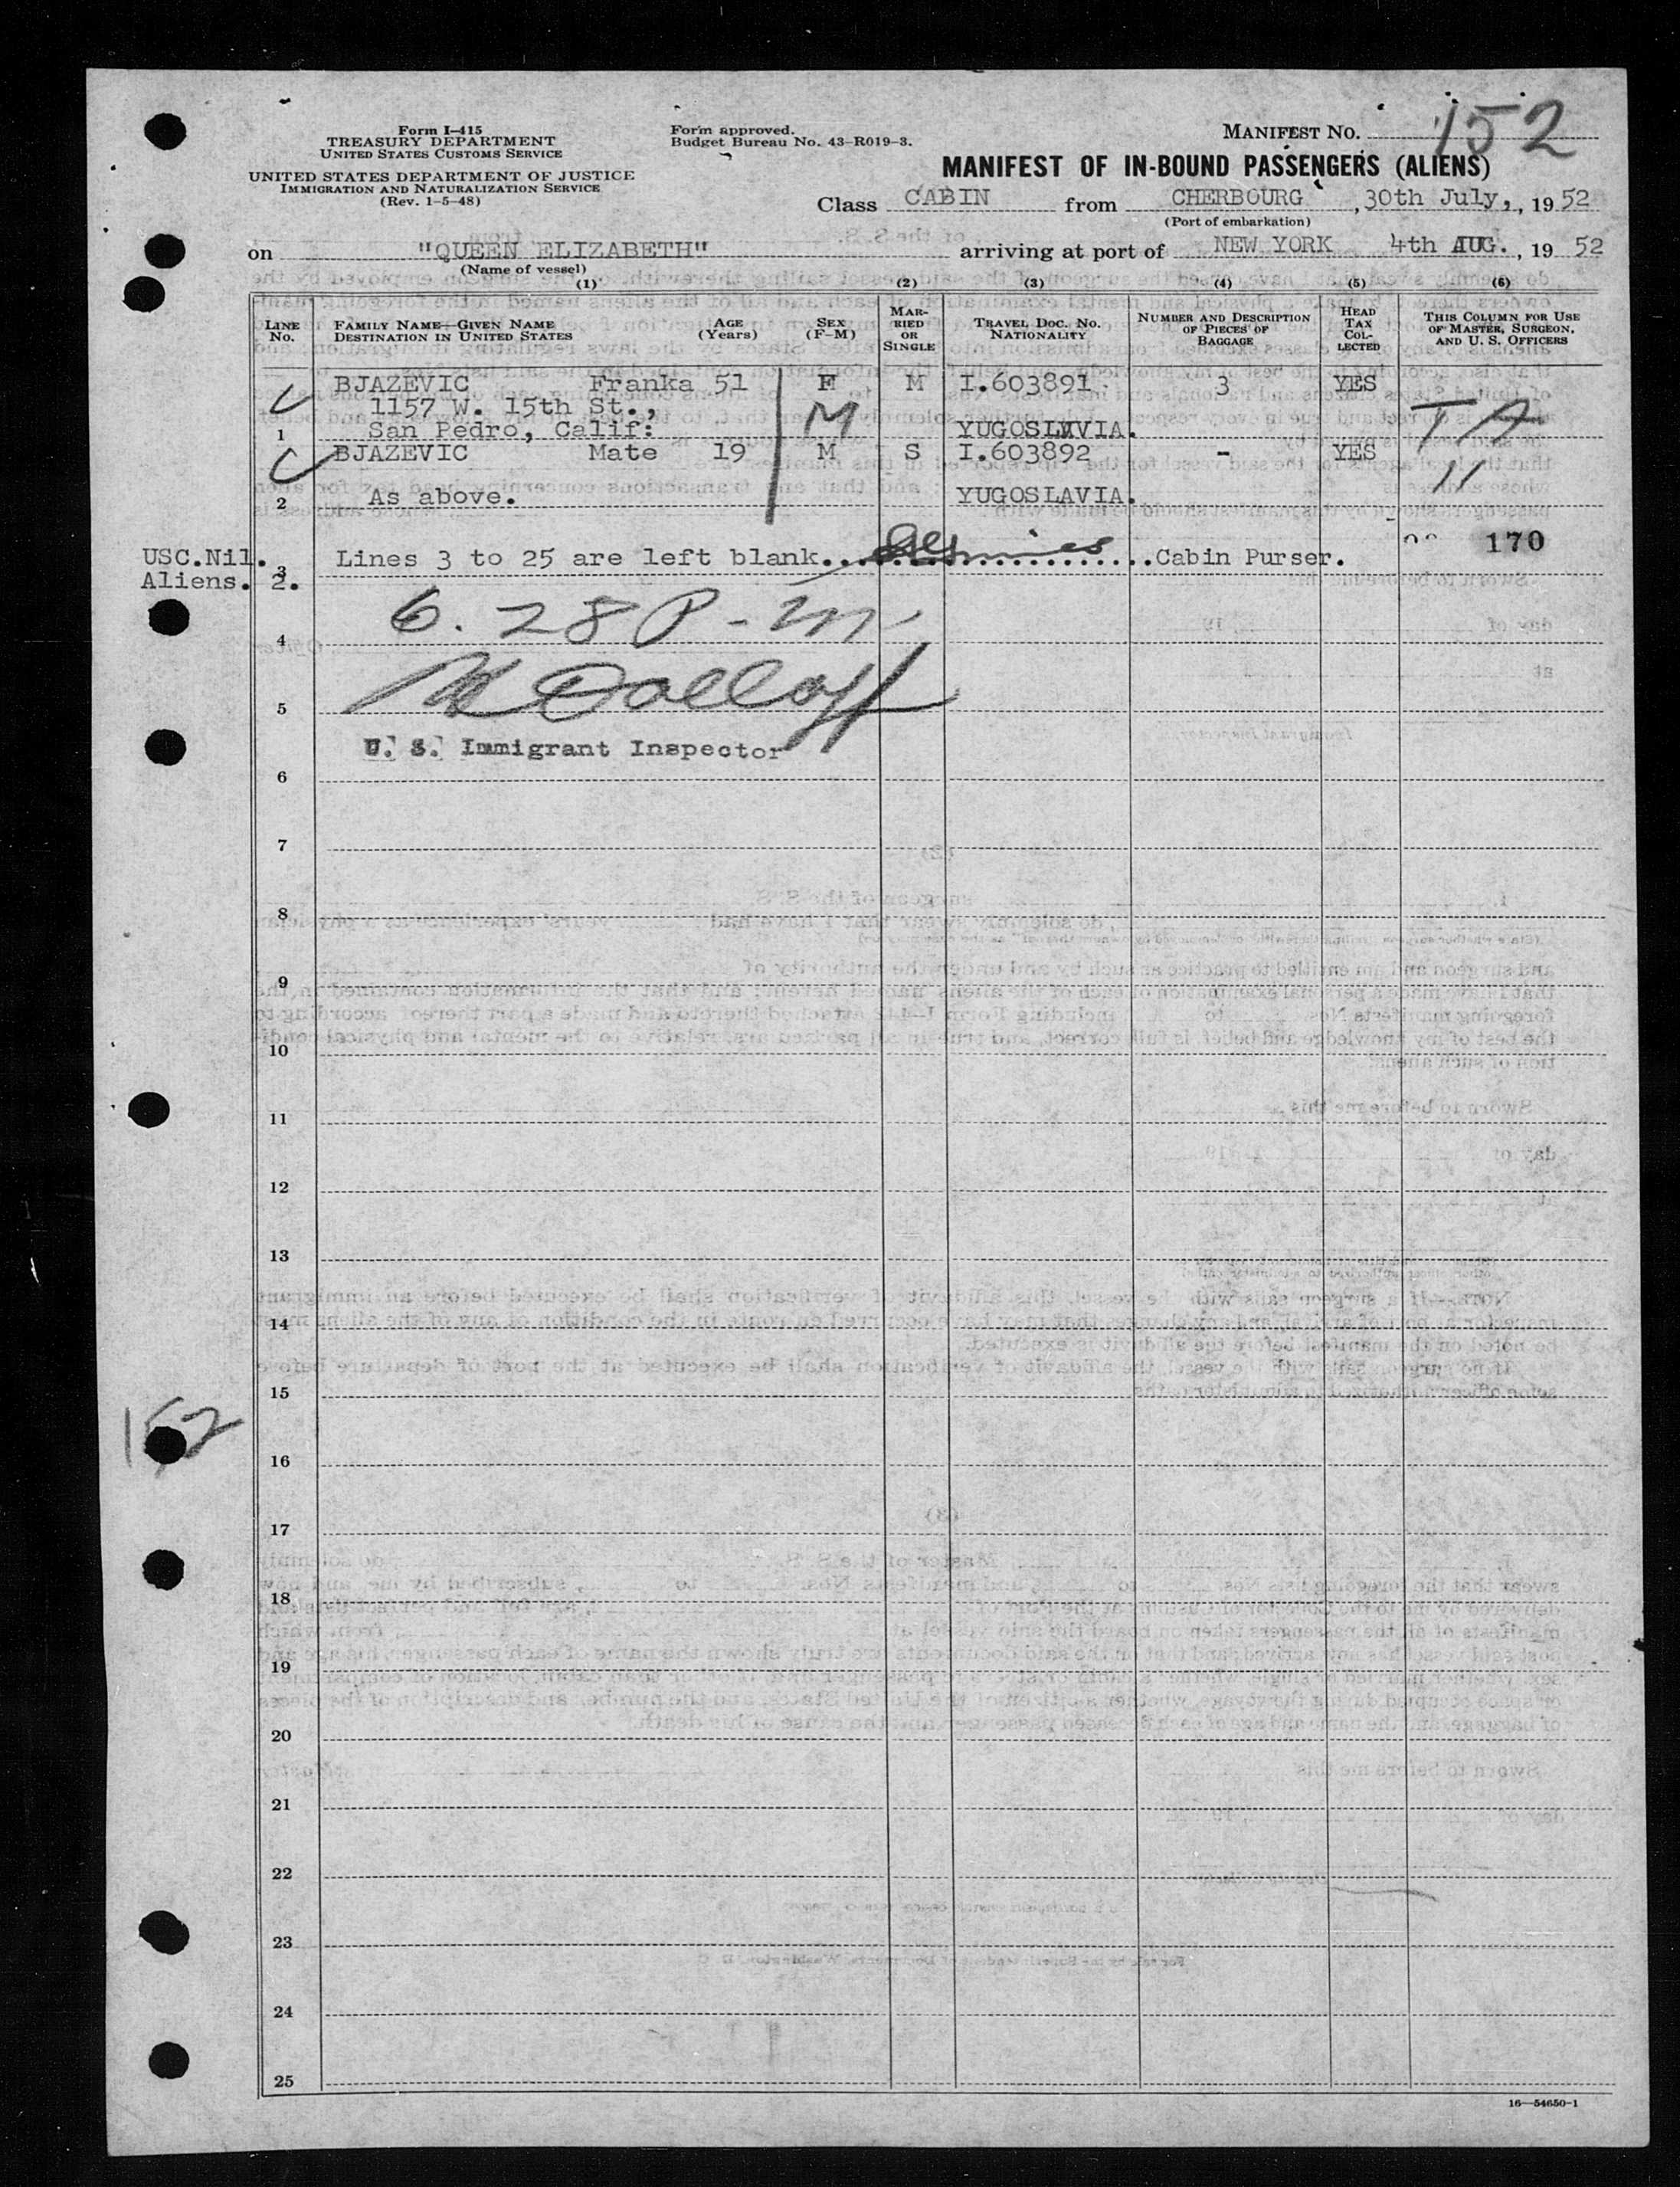 Form I-415
TREASURY DEPARTMENT
UNITED STATES CUSTOMS SERVICE
UNITED STATES DEPARTMENT OF JUSTICE
IMMIGRATION AND NATURALIZATION SERVICE
(Rev. 1-5-48)
Form approved.
Budget Bureau No. 43-R019-3.
MANIFEST NO. 152
MANIFEST OF IN-BOUND PASSENGERS (ALIENS)
Class CABIN from CHERBOURG, 30th July, 1952
(Port of embarkation)
on "QUEEN ELIZABETH" arriving at port of NEW YORK 4th AUG., 1952
(Name of vessel)
(1) (2) (3) (4) (5) (6)
LINE No. FAMILY NAME—GIVEN NAME DESTINATION IN UNITED STATES AGE (Years) SEX (F-M) MARRIED OR SINGLE TRAVEL DOC. NO. NATIONALITY NUMBER AND DESCRIPTION OF PIECES OF BAGGAGE HEAD TAX COLLECTED THIS COLUMN FOR USE OF MASTER, SURGEON, AND U. S. OFFICERS
BJAZEVIC Franka 51 F M I.603891 3 YES
1157 W. 15th St., M TA
1 San Pedro, Calif: YUGOSLAVIA.
BJAZEVIC Mate 19 M S I.603892 - YES
"
2 As above. YUGOSLAVIA.
170
USC.Nil. 3 Lines 3 to 25 are left blank. Cabin Purser.
Aliens. 2.
6.28 P-m
4
5
U. S. Immigrant Inspector
6
7
8
9
10
11
12
13
14
15
152
16
17
18
19
20
21
22
23
24
25
16—54650-1